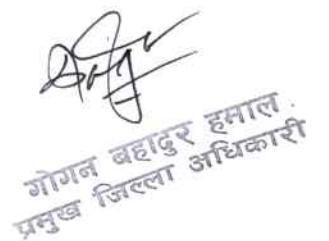 गोगन बहादुर हमाल
प्रमुख जिल्ला अधिकारी